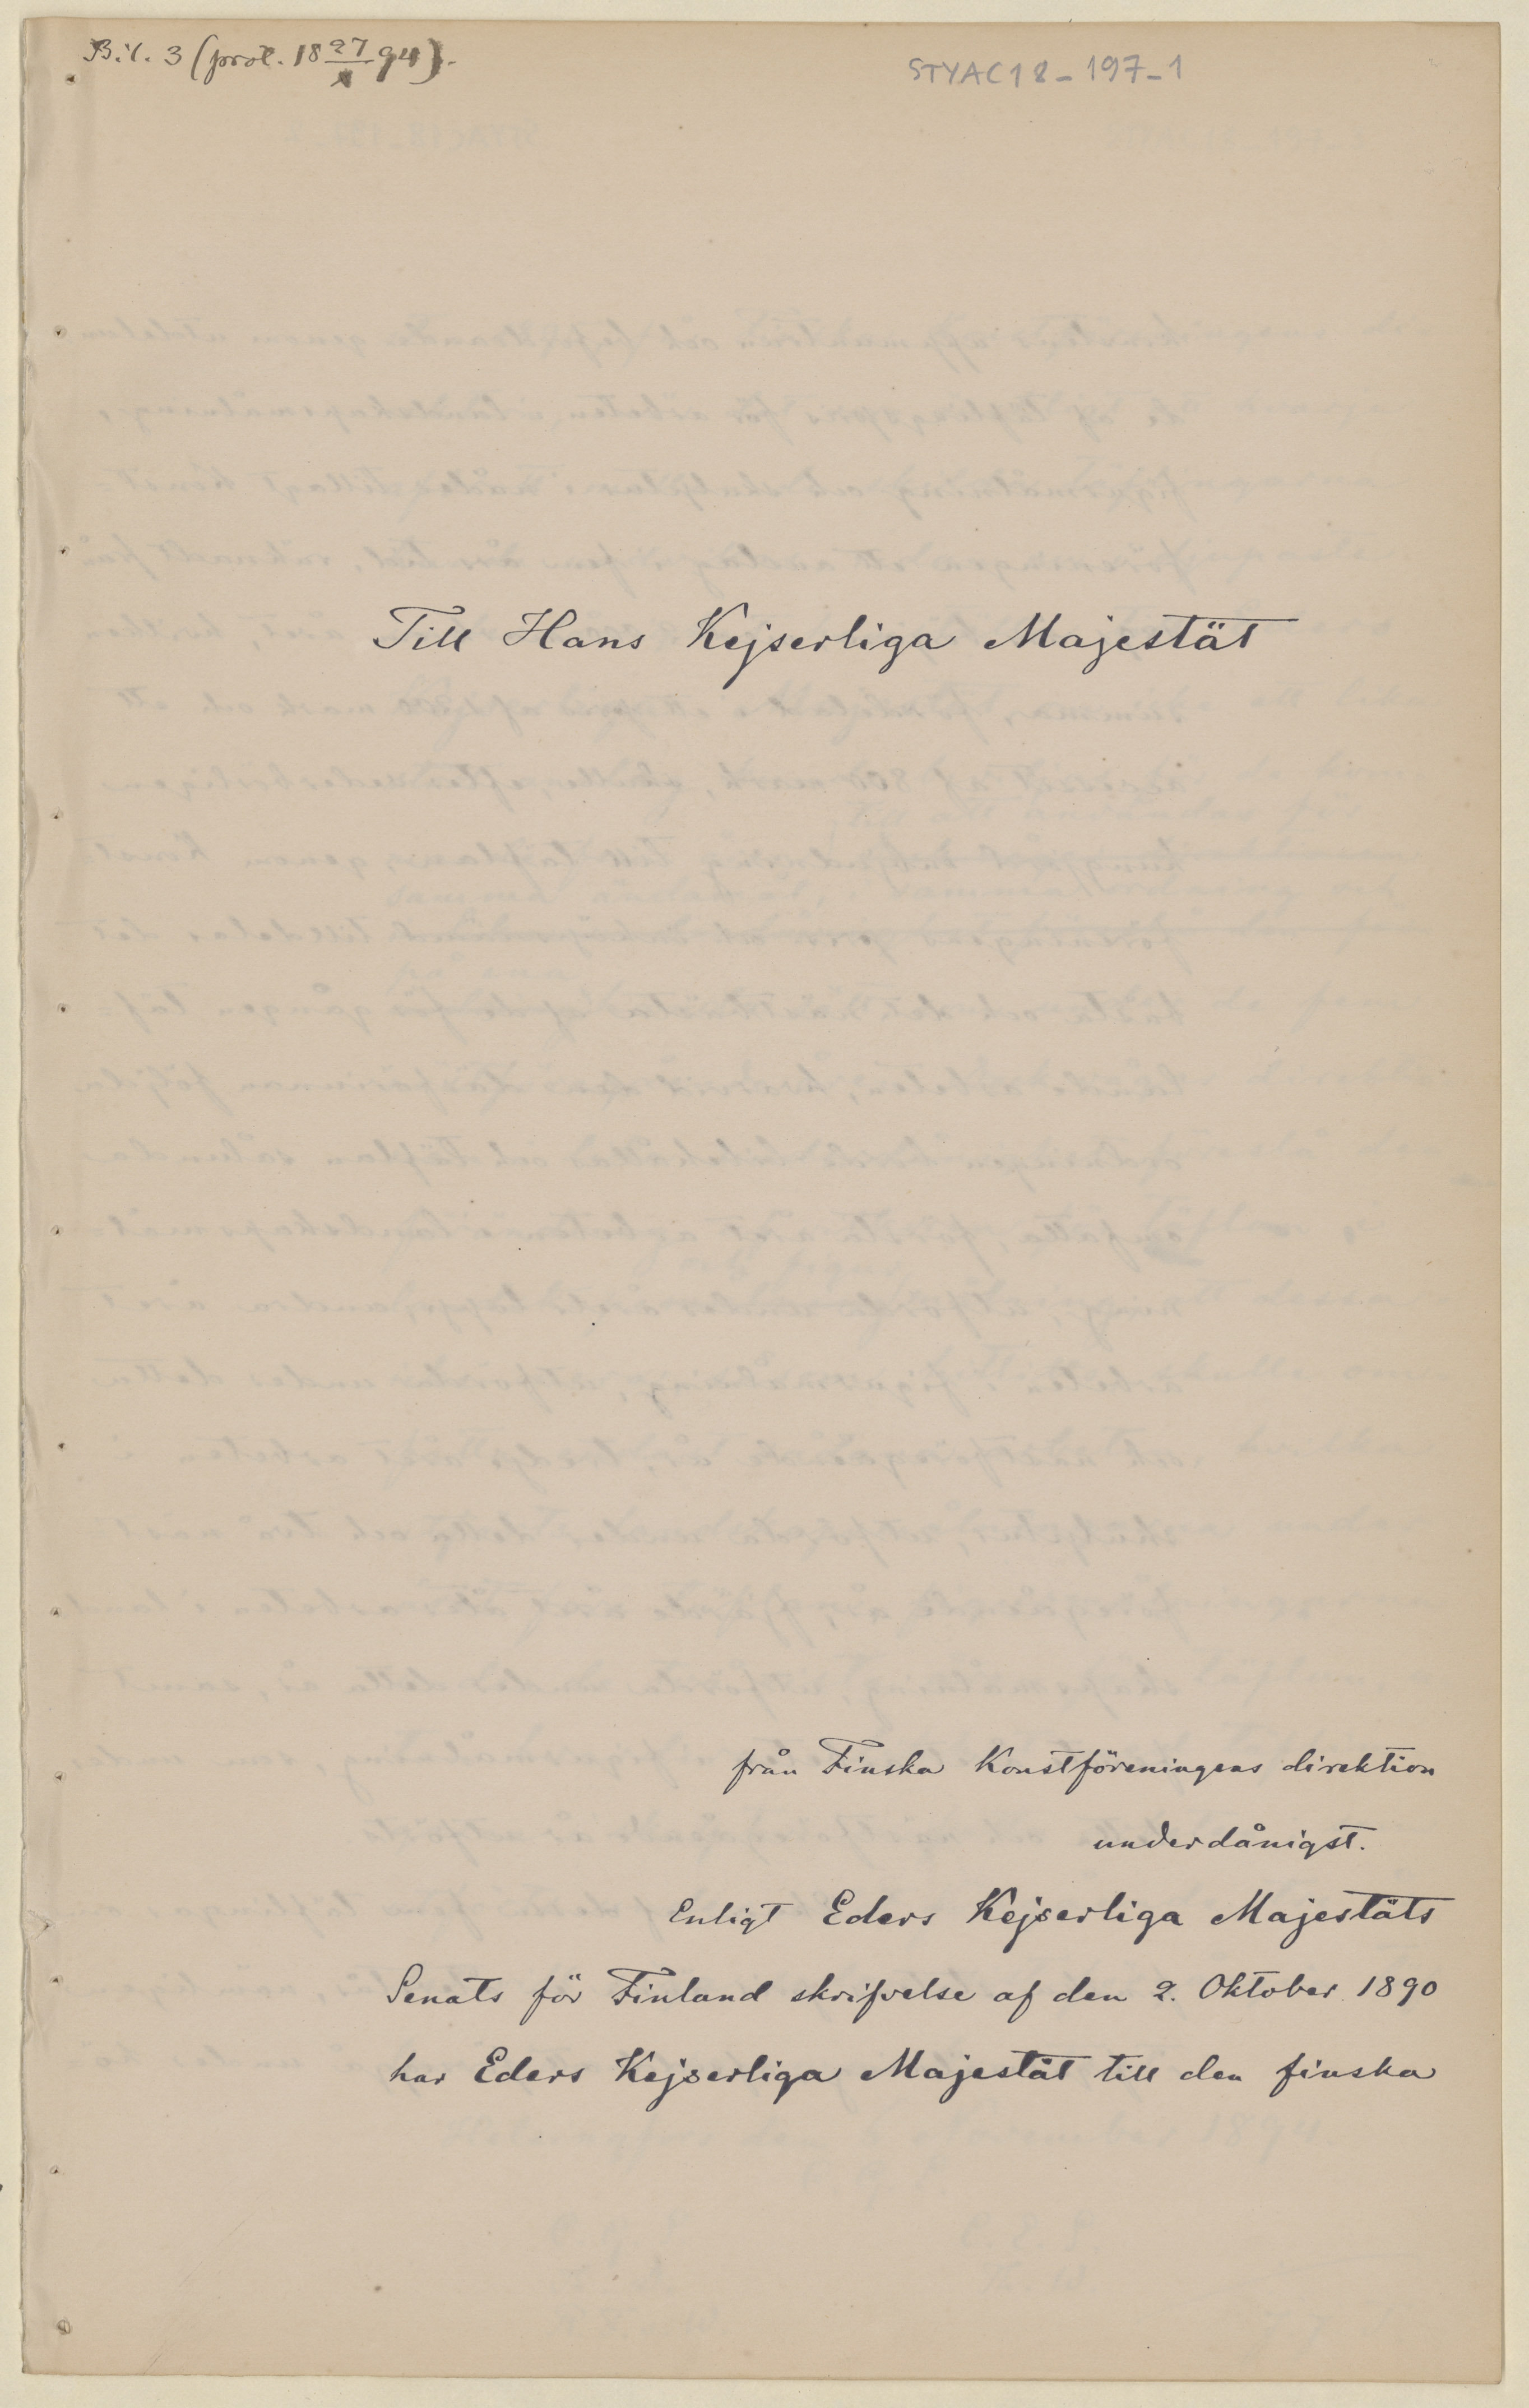 Bil. 3 (prot. 18 27/X 94).
STYAC18-197-1
Till Hans Kejserliga Majestät
från Finska Konstföreningens direktion
underdånigst.
Enligt Eders Kejserliga Majestäts
Senats för Finland skrifvelse af den 2. Oktober 1890
har Eders Kejserliga Majestät till den finska